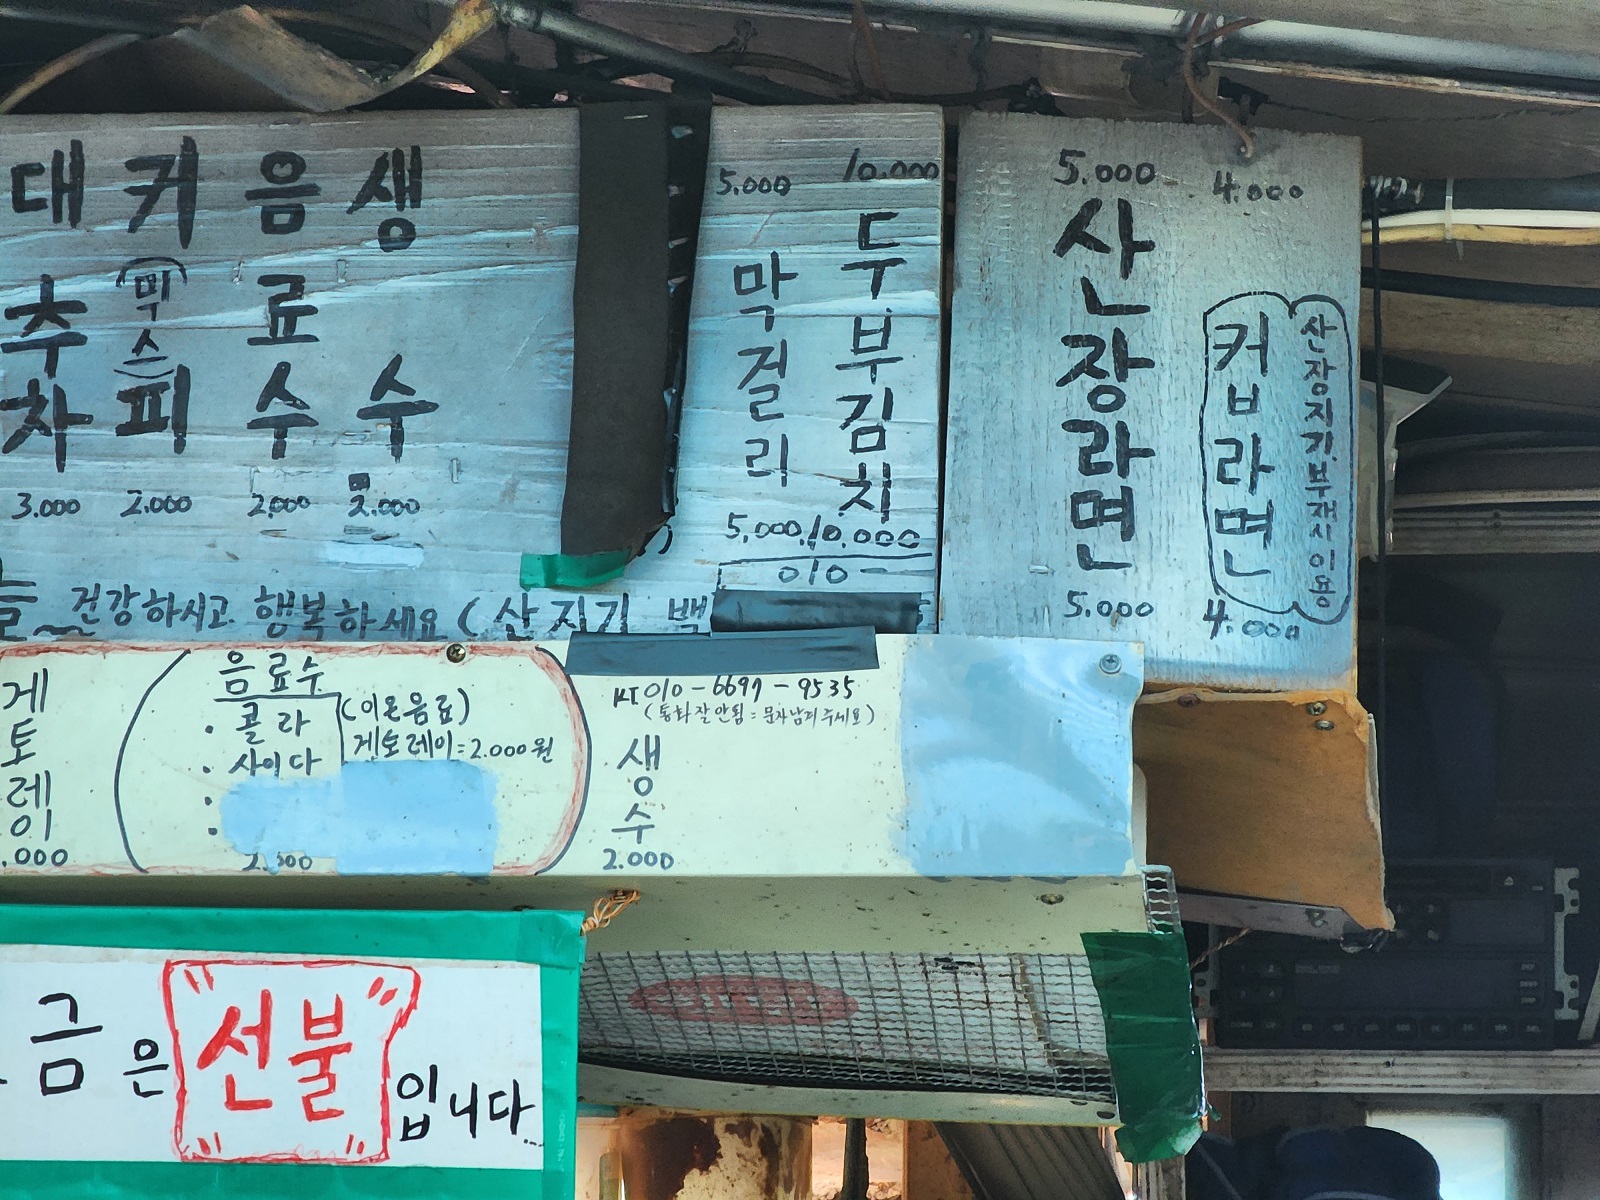 대추차
3.000
커(믹스)피
2.000
음료수
2.000
생수
2.000
5.000
막걸리
5,000
10.000
두부김치
10.000
5.000
산장라면
5.000
4.000
컵라면
산장지기.부재시 이용
4.000
010
늘 건강하시고 행복하세요 (산지기 백
게토레이
.000
음료수
· 콜라
· 사이다
(이온음료)
게토레이=2.000원
KT 010-6697-9535
(통화잘안됨=문자남겨주세요)
생수
2.000
금은 "선불" 입니다...